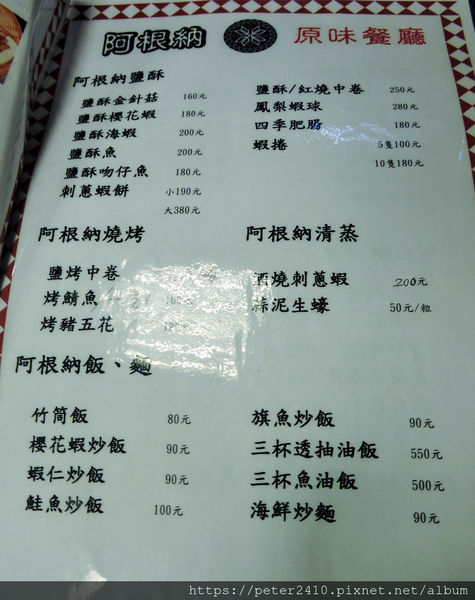 阿根納 原味餐廳
阿根納鹽酥
鹽酥金針菇 160元
鹽酥櫻花蝦 180元
鹽酥海蝦 200元
鹽酥魚 200元
鹽酥吻仔魚 180元
刺蔥蝦餅 小190元
大380元
鹽酥/紅燒中卷 250元
鳳梨蝦球 280元
四季肥腸 180元
蝦捲 5隻100元
10隻180元
阿根納燒烤
鹽烤中卷
烤鯖魚
烤豬五花
阿根納清蒸
酒燒刺蔥蝦 200元
蒜泥生蠔 50元/粒
阿根納飯、麵
竹筒飯 80元
櫻花蝦炒飯 90元
蝦仁炒飯 90元
鮭魚炒飯 100元
旗魚炒飯 90元
三杯透抽油飯 550元
三杯魚油飯 500元
海鮮炒麵 90元
https://peter2410.pixnet.net/album